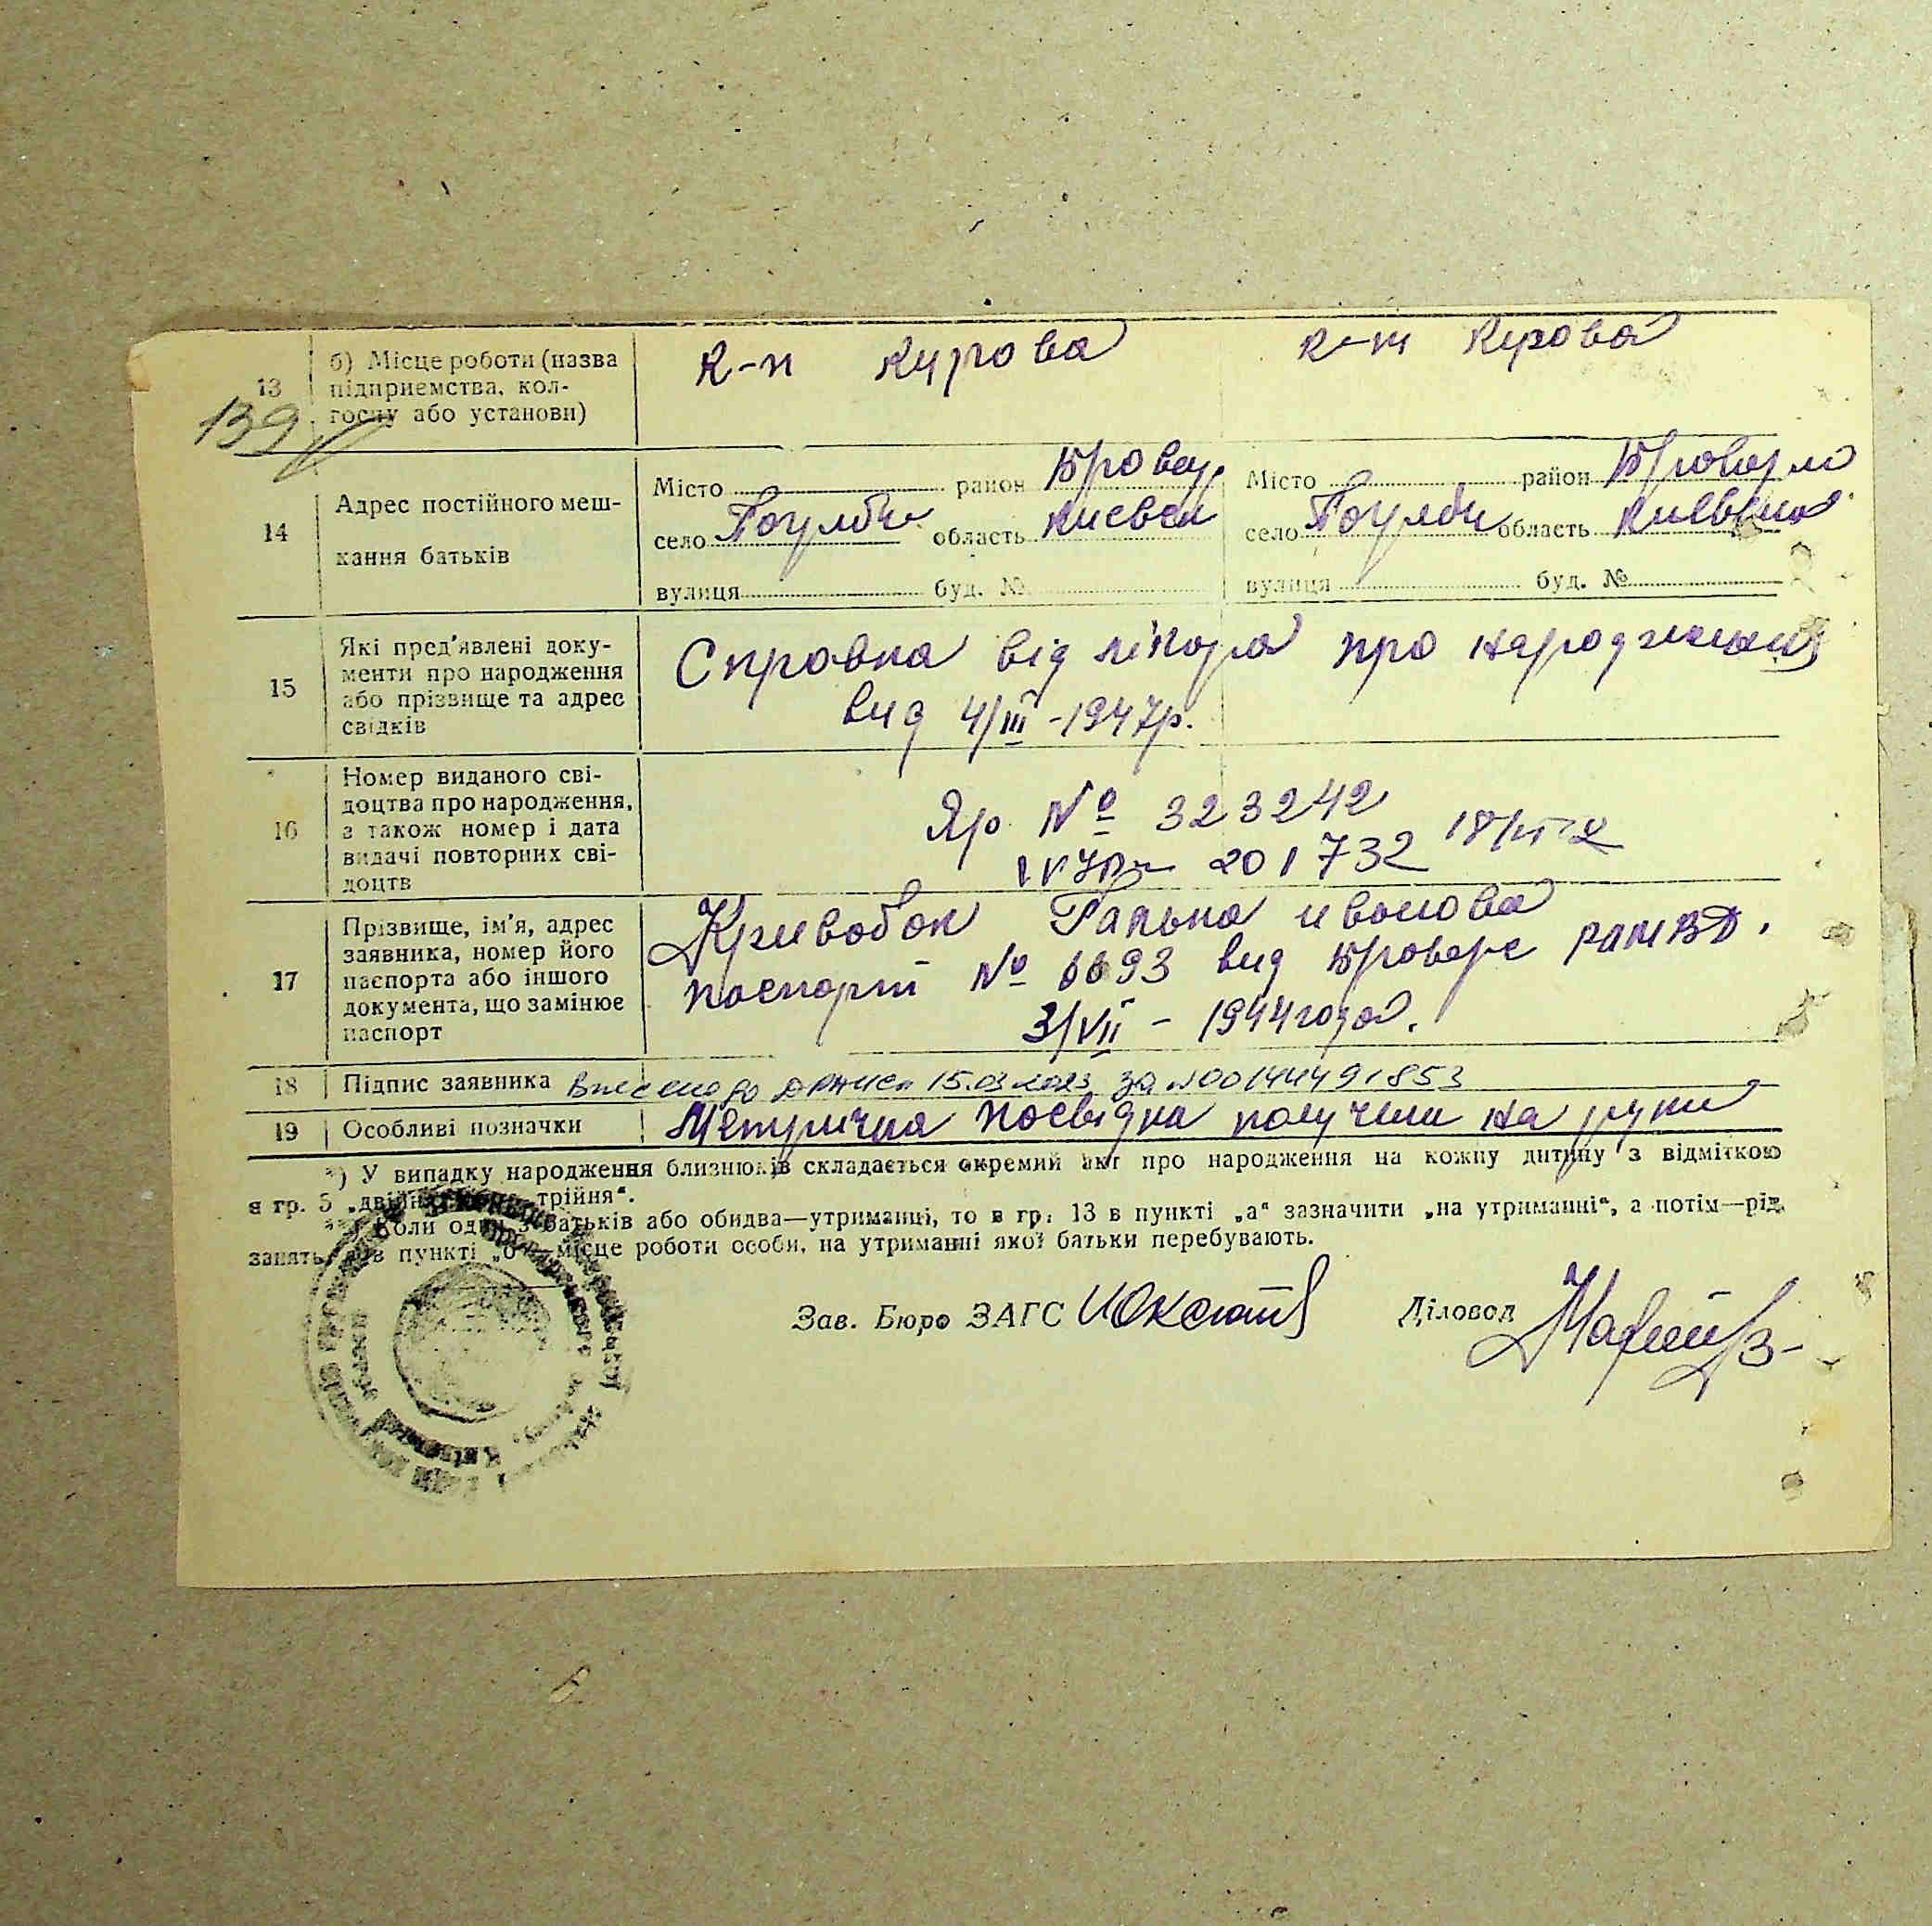 13
б) Місце роботи (назва
підприємства, кол-
госпу або установи)
к-п Кірова
к-п Кірова
139
14
Адрес постійного меш-
кання батьків
Місто район Бровар.
село область Києвск
вулиця буд. №
Місто район
село область
вулиця буд. №
15
Які пред'явлені доку-
менти про народження
або прізвище та адрес
свідків
Справка від лікаря про народження
вид 4/III-1947р.
16
Номер виданого сві-
доцтва про народження,
а також номер і дата
видачі повторних сві-
доцтв
Яр № 323242
201732
17
Прізвище, ім'я, адрес
заявника, номер його
паспорта або іншого
документа, що замінює
паспорт
Кривобок
паспорт № вид
3/VII - 1944 года.
18
Підпис заявника
Внесено до 15.03.2023 за №00144491853
19
Особливі позначки
Метрична посвідка получили на руки
*) У випадку народження близнюків складається окремий акт про народження на кожну дитину з відміткою
в гр. 5 „двійня трійня“.
Коли один з батьків або обидва—утриманці, то в гр. 13 в пункті „а“ зазначити „на утриманні“, а потім—рід
занять, а в пункті „б“—місце роботи особи, на утриманні якої батьки перебувають.
Зав. Бюро ЗАГС
Діловод